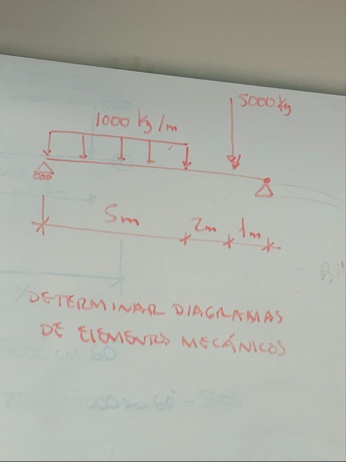 5000 kg
1000 kg/m
5m 2m 1m
DETERMINAR DIAGRAMAS
DE ELEMENTOS MECÁNICOS